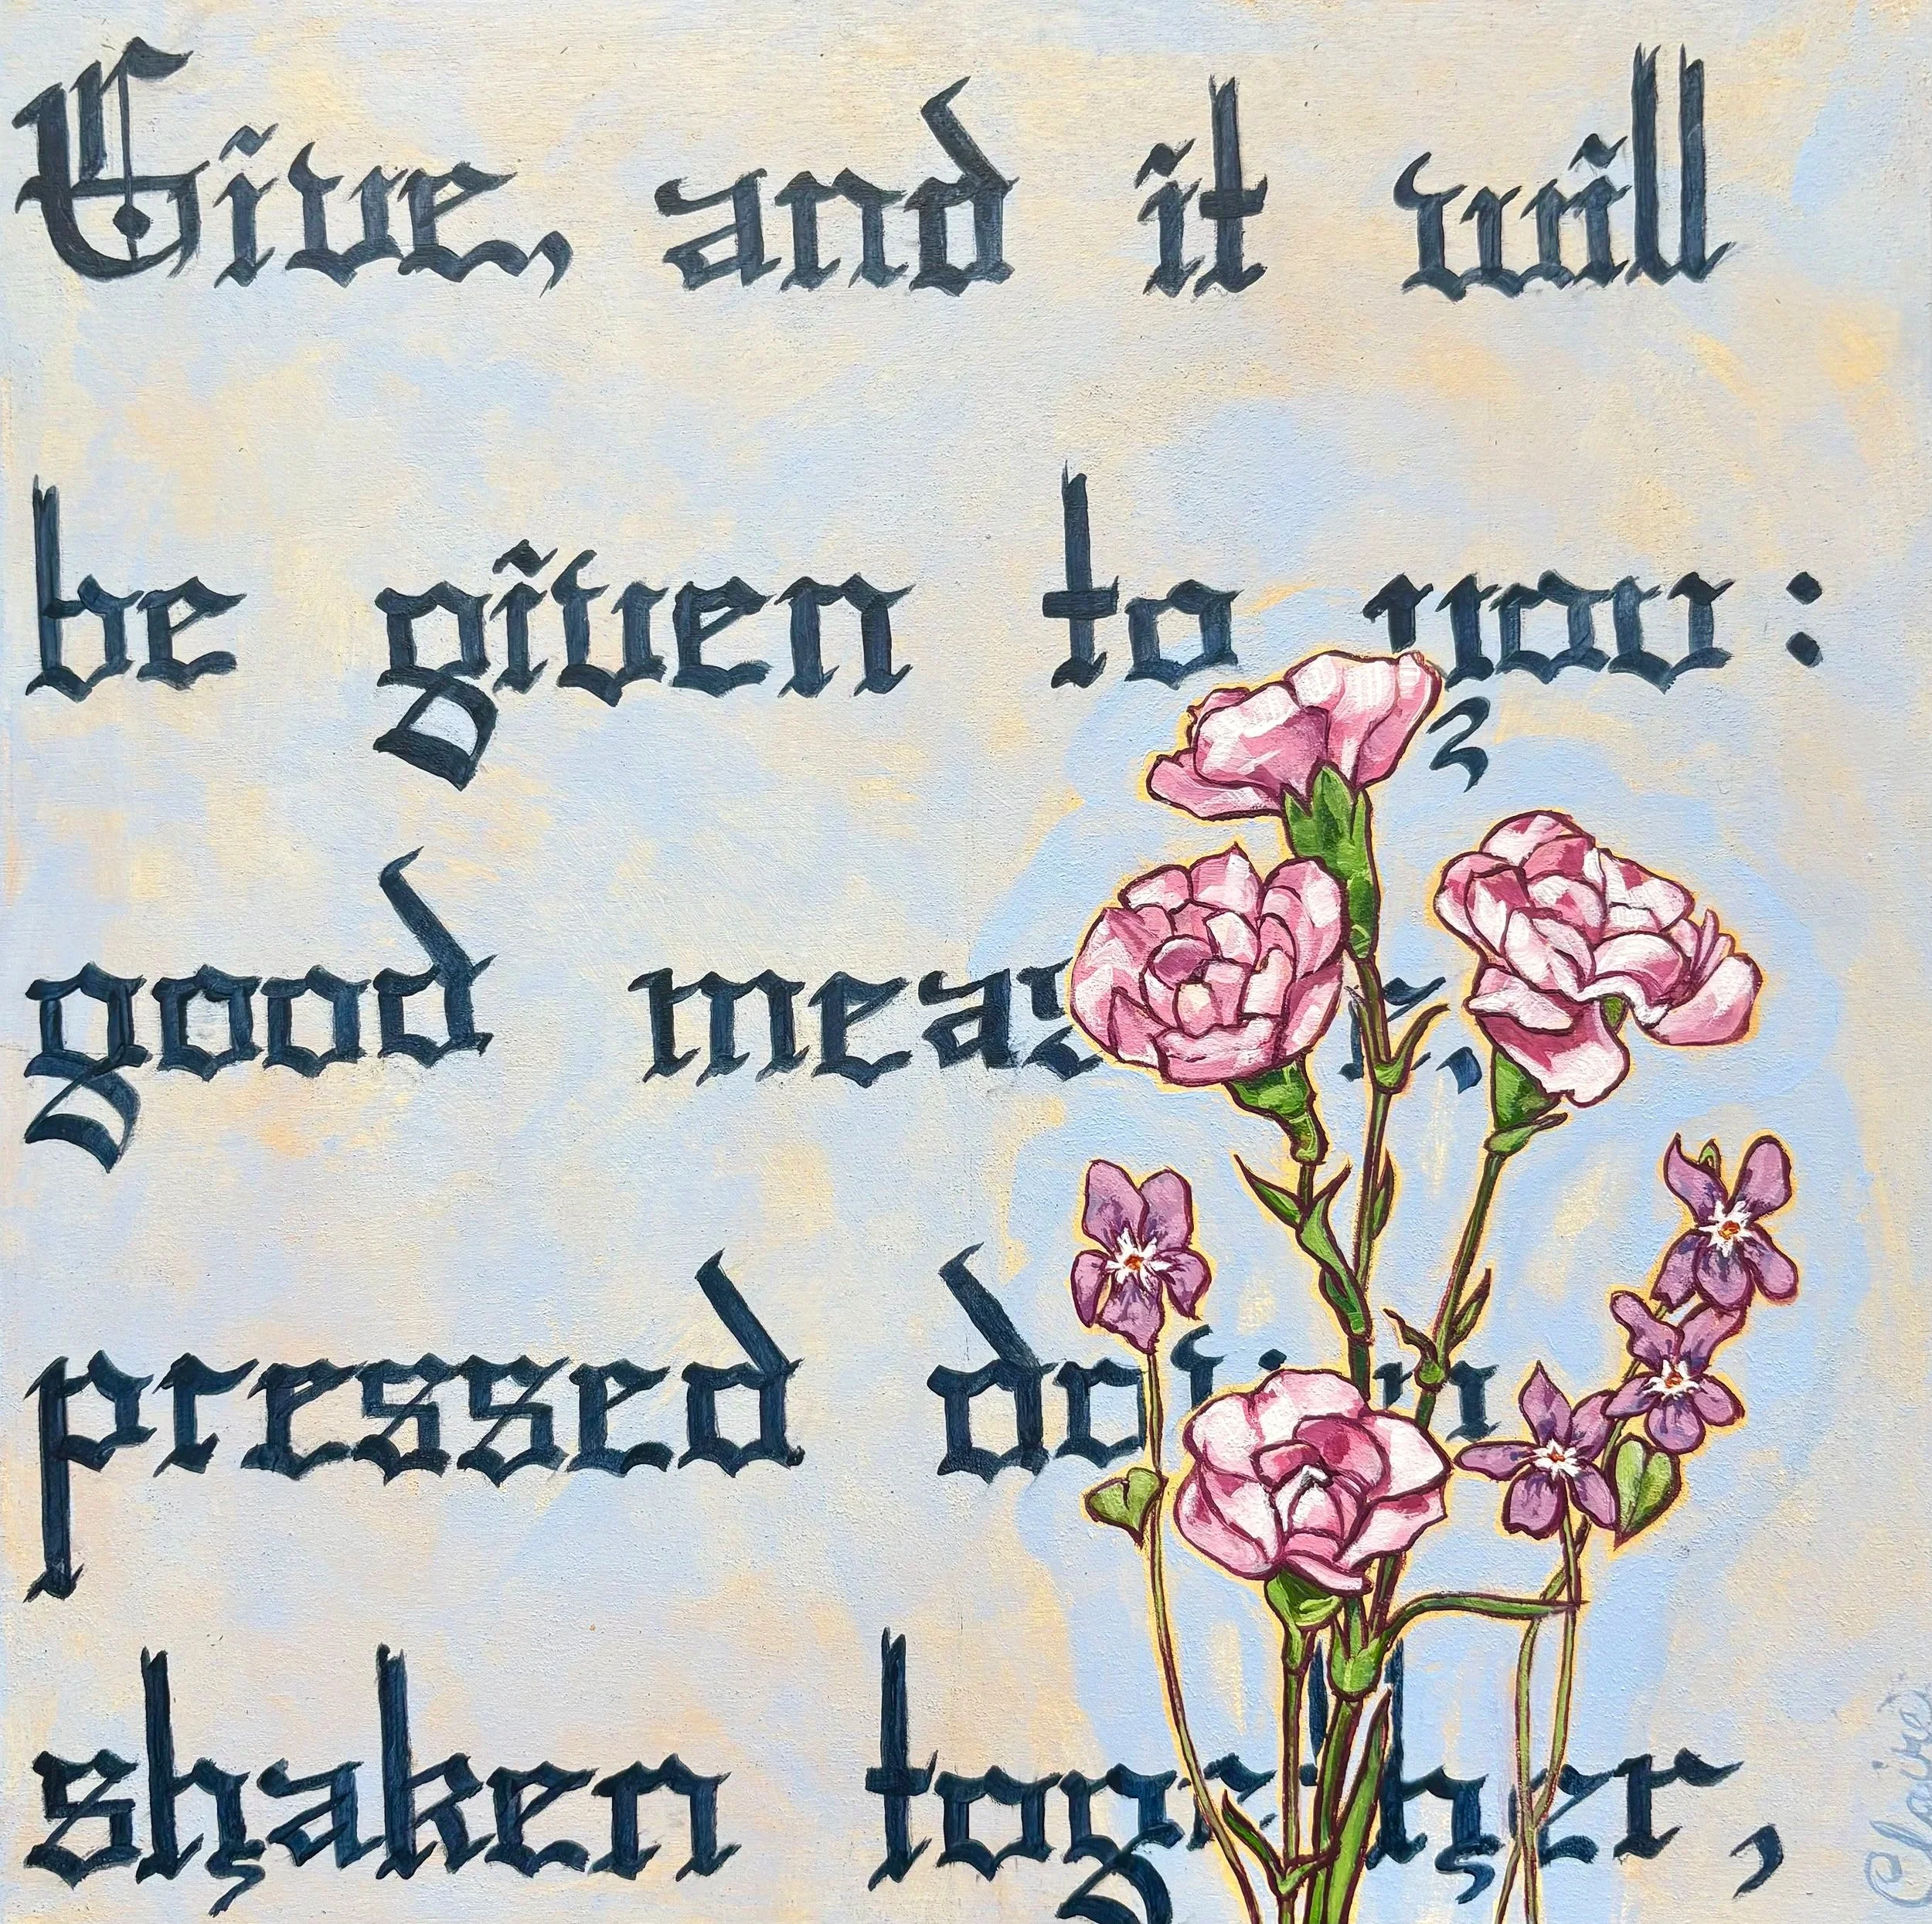 Give, and it will
be given to you:
good measure,
pressed down
shaken together,
Claire